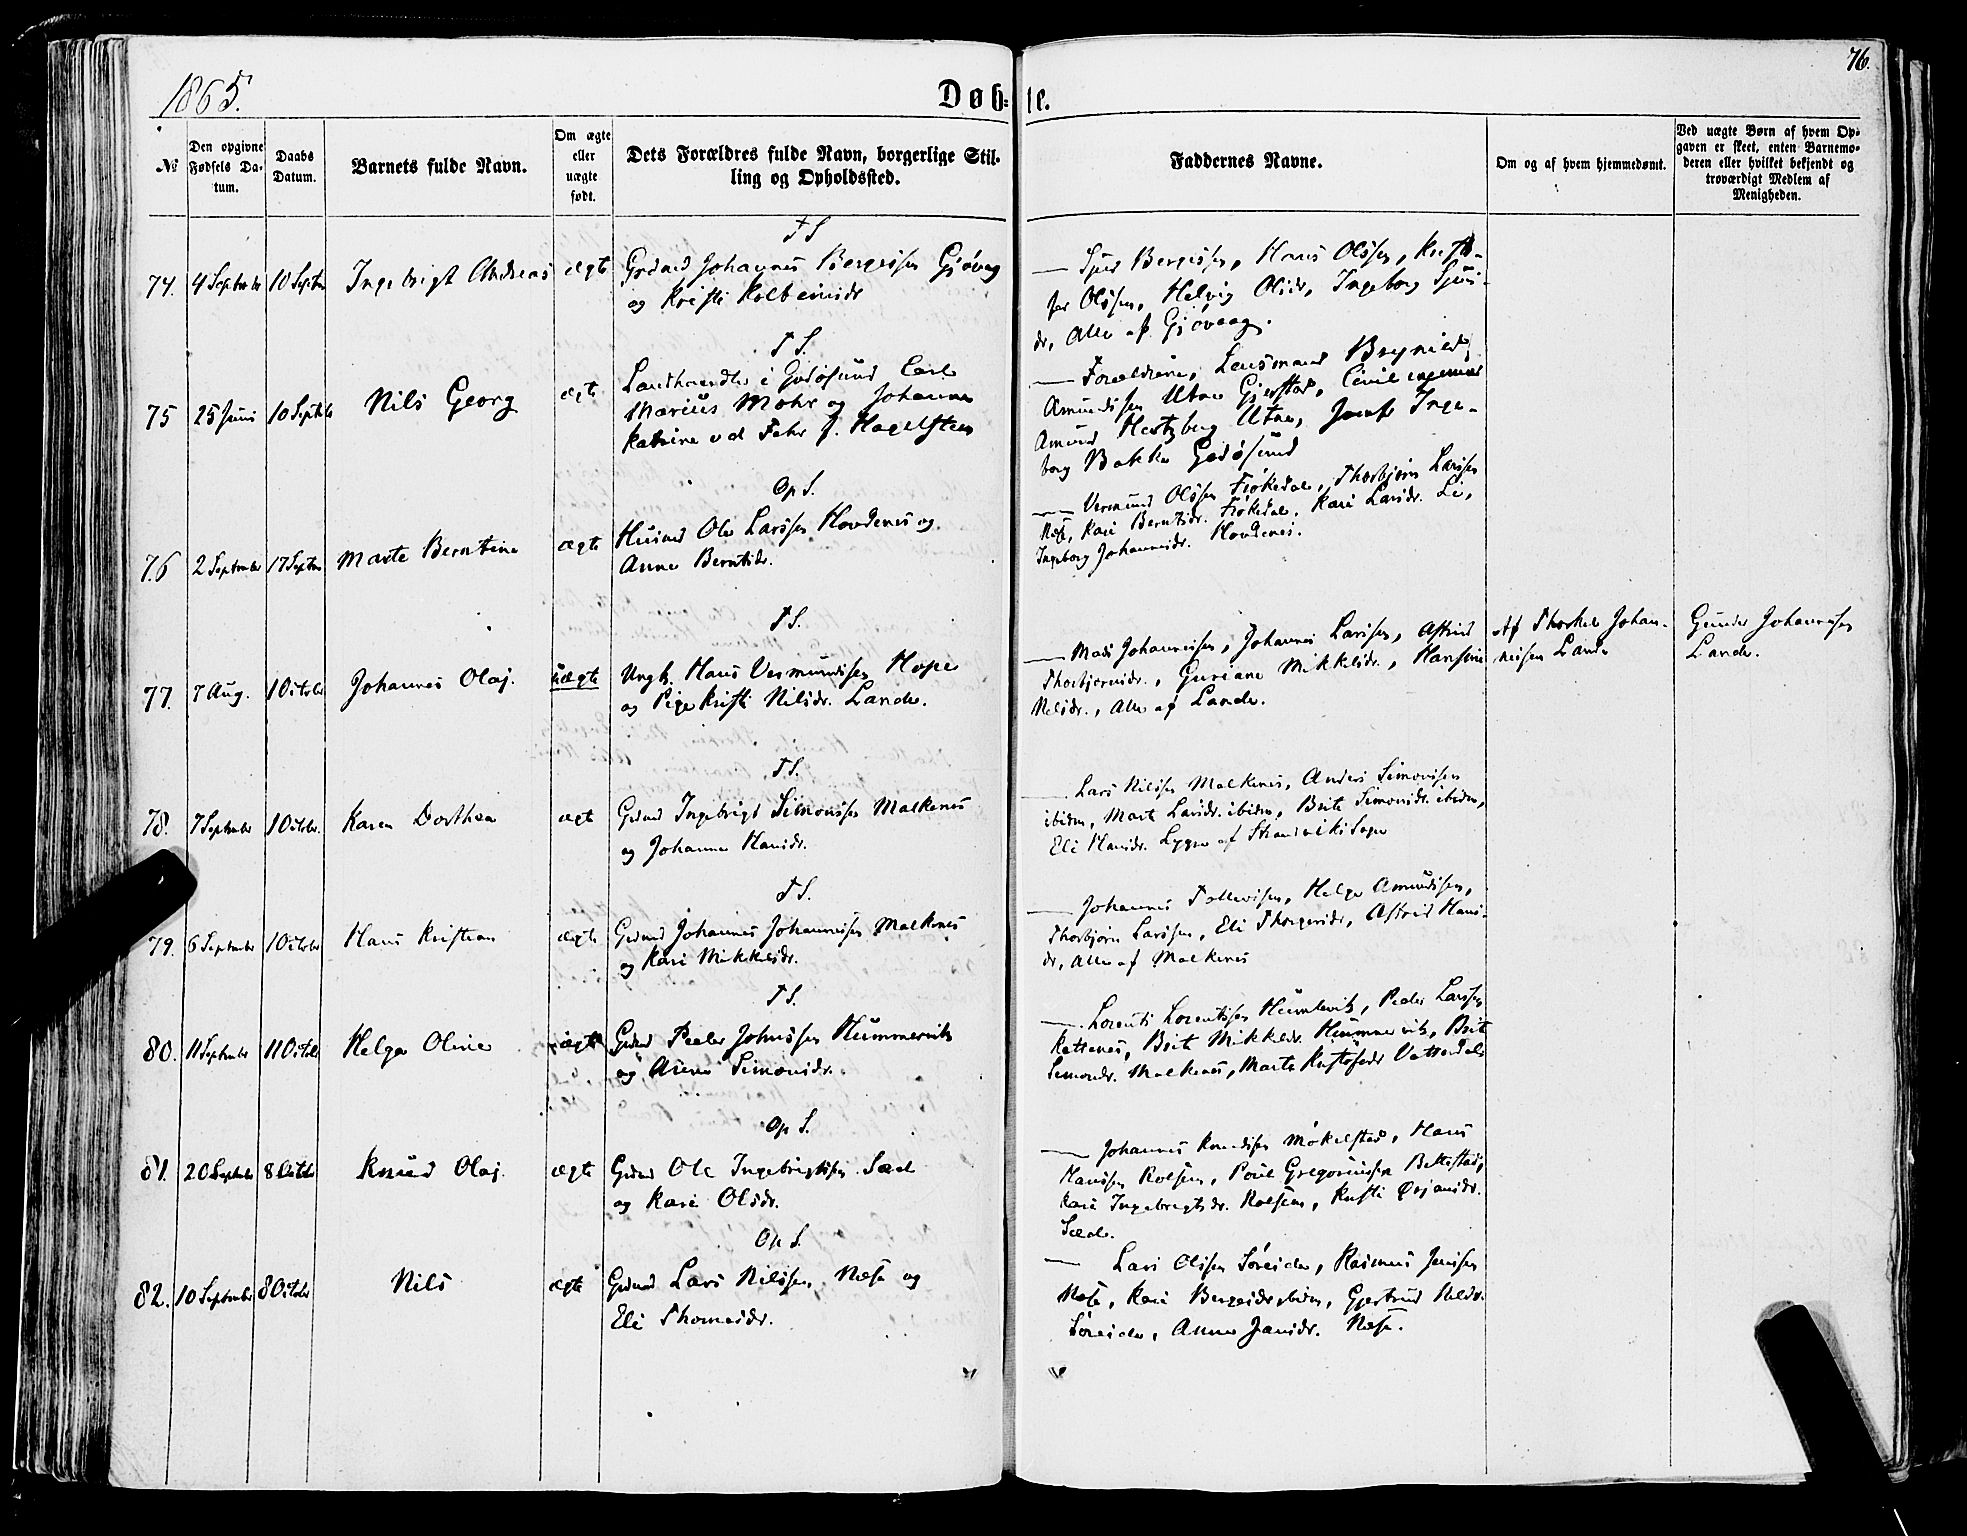 1865.
Døb=
se.
76.
№
Den opgivne Fødsels Da-
tum.
Daabs
Datum.
Barnets fulde Navn.
Om ægte
eller
uægte
født.
Dets Forældres fulde Navn, borgerlige Stil-
ling og Opholdssted.
Faddernes Navne.
Om og af hvem hjemmedøbt.
Ved uægte Børn af hvem Op-
gaven er skeet, enten Barnemo-
deren eller hvilket bekjendt og
troværdigt Medlem af
Menigheden.
T S
74. 4 September 10 Septbr Ingebrigt Andreas ægte Grdmd Johannes Bergesen Gjøvag
og Kristi Kolbeinsdr
— Sjur Bergesen, Hans Olsen, Kristo-
fer Olsen, Helvig Olsdr, Ingeborg Sjurs-
dr, Alle af Gjøvaag.
T S.
75 25 Juni 10 Septbr Nils Georg ægte Landhandler i Godøsund Carl
Marius Mohr og Johanne
Katrine ved Fehr f. Hagelsteen
— Forældrene, Lensmand Brynild
Amundsen Utne Gjerstad, Civilingeniør
Amund Hertzberg Utne, Jomfr Inge-
borg Bakke Godøsund
Op S.
76 2 September 17 Septbr Marte Berntine ægte Husmd Ole Larsen Hovdenes og
Anne Berntsdr.
— Vermund Olsen Fiskedal, Thorbjørn Larsen
Næse, Kari Berntsdr. Fiskedal, Kari Larsdr. Li,
Ingeborg Johannesdr. Hovdenes.
T S.
77. 7 Aug. 1 October Johannes Olaj. uægte Ungk. Hans Vermundsen Hope
og Pige Kristi Nilsdr. Lande.
— Mads Johannessen, Johannes Larsen, Astrid
Thorbjørnsdr., Guriane Mikkelsdr., Hansine
Nelsdr., Alle af Lande.
Af Thorkel Johan-
nesen Lande
Gunder Johannesen
Lande.
T S.
78. 7 September 1 October. Karen Dorthea ægt Grdmd Ingebrigt Simonsen Malkenes
og Johanne Hansdr.
— Lars Nilsen Malkenes, Anders Simonsen
ibidem, Marte Larsdr. ibidem, Brite Simonsdr. ibidem,
Eli Hansdr. Lygre af Strandviks Sogn
T S.
79. 6 September 1 October Hans Kristian ægte Grdmd Johannes Johannesen Malkenes
og Kari Mikkelsdr.
— Johannes Tollevsen, Helge Amundsen,
Thorbjørn Larsen, Eli Thorgersdr, Astrid Hans-
dr, Alle af Malkenes
T S.
80. 11 September 1 October Helga Oline ægte Grdmd Peder Johnsen Hummervik
og Anna Simonsdr.
— Lorents Lorentsen Humlevik, Peder Larsen
Kattenes, Brite Mikkelsdr. Hummervik, Brite
Simonsdr. Malkenes, Marte Kristofersdr Vatterdal
Op S.
81. 20 September 8 October Knud Olaj. ægte Grdmd Ole Ingebrigtsen Sæle
og Kari Olsdr.
— Johannes Knudsen Møkelstad, Hans
Hansen Kolseus, Poul Gregoriussen Bekkestad,
Kari Ingebrigtsdr. Kolseus, Kristi Ørjansdr.
Sæle.
Op S.
82. 10 September 8 October Nils ægte Grdmd Lars Nilsen Næse og
Eli Thomesdr.
— Lars Olsen Søreide, Rasmus Jensen
Næse, Kari Bergesdr ibidem, Gjertrud Nilsdr.
Søreide, Anna Jansdr. Næse.